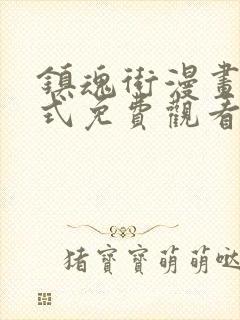 鎮魂街漫畫
式免費觀看
猪寶寶萌萌噠